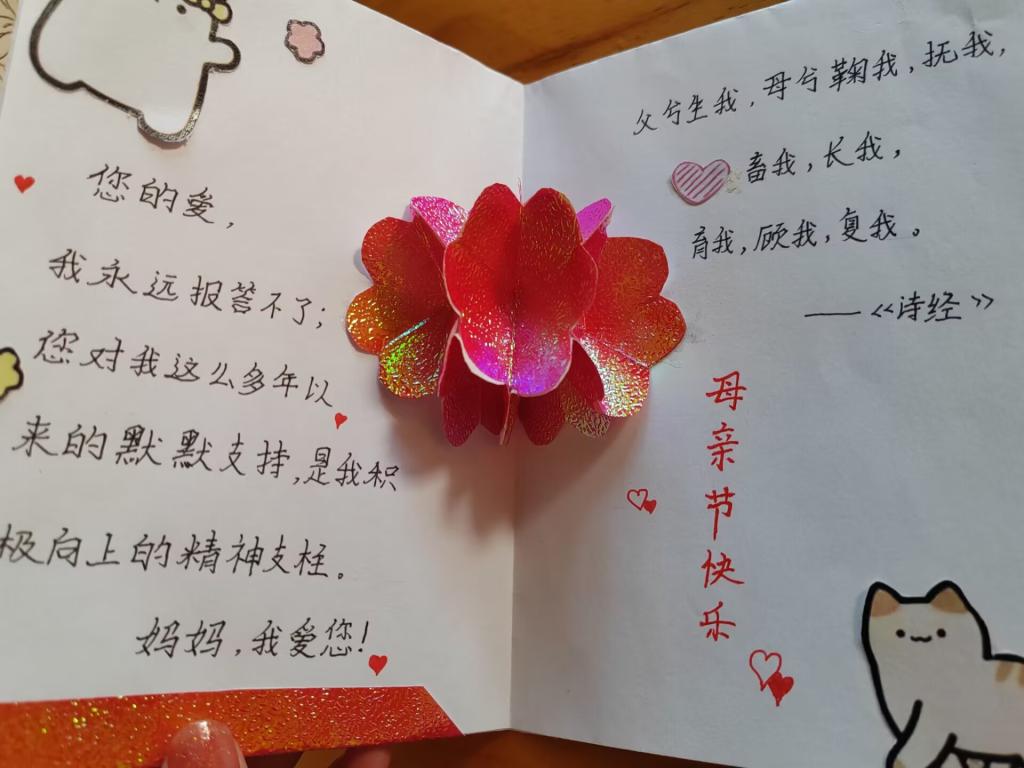 您的爱，
我永远报答不了；
您对我这么多年以
来的默默支持，是我积
极向上的精神支柱。
妈妈，我爱您！
父兮生我，母兮鞠我，抚我，
畜我，长我，
育我，顾我，复我。
——《诗经》
母亲节快乐